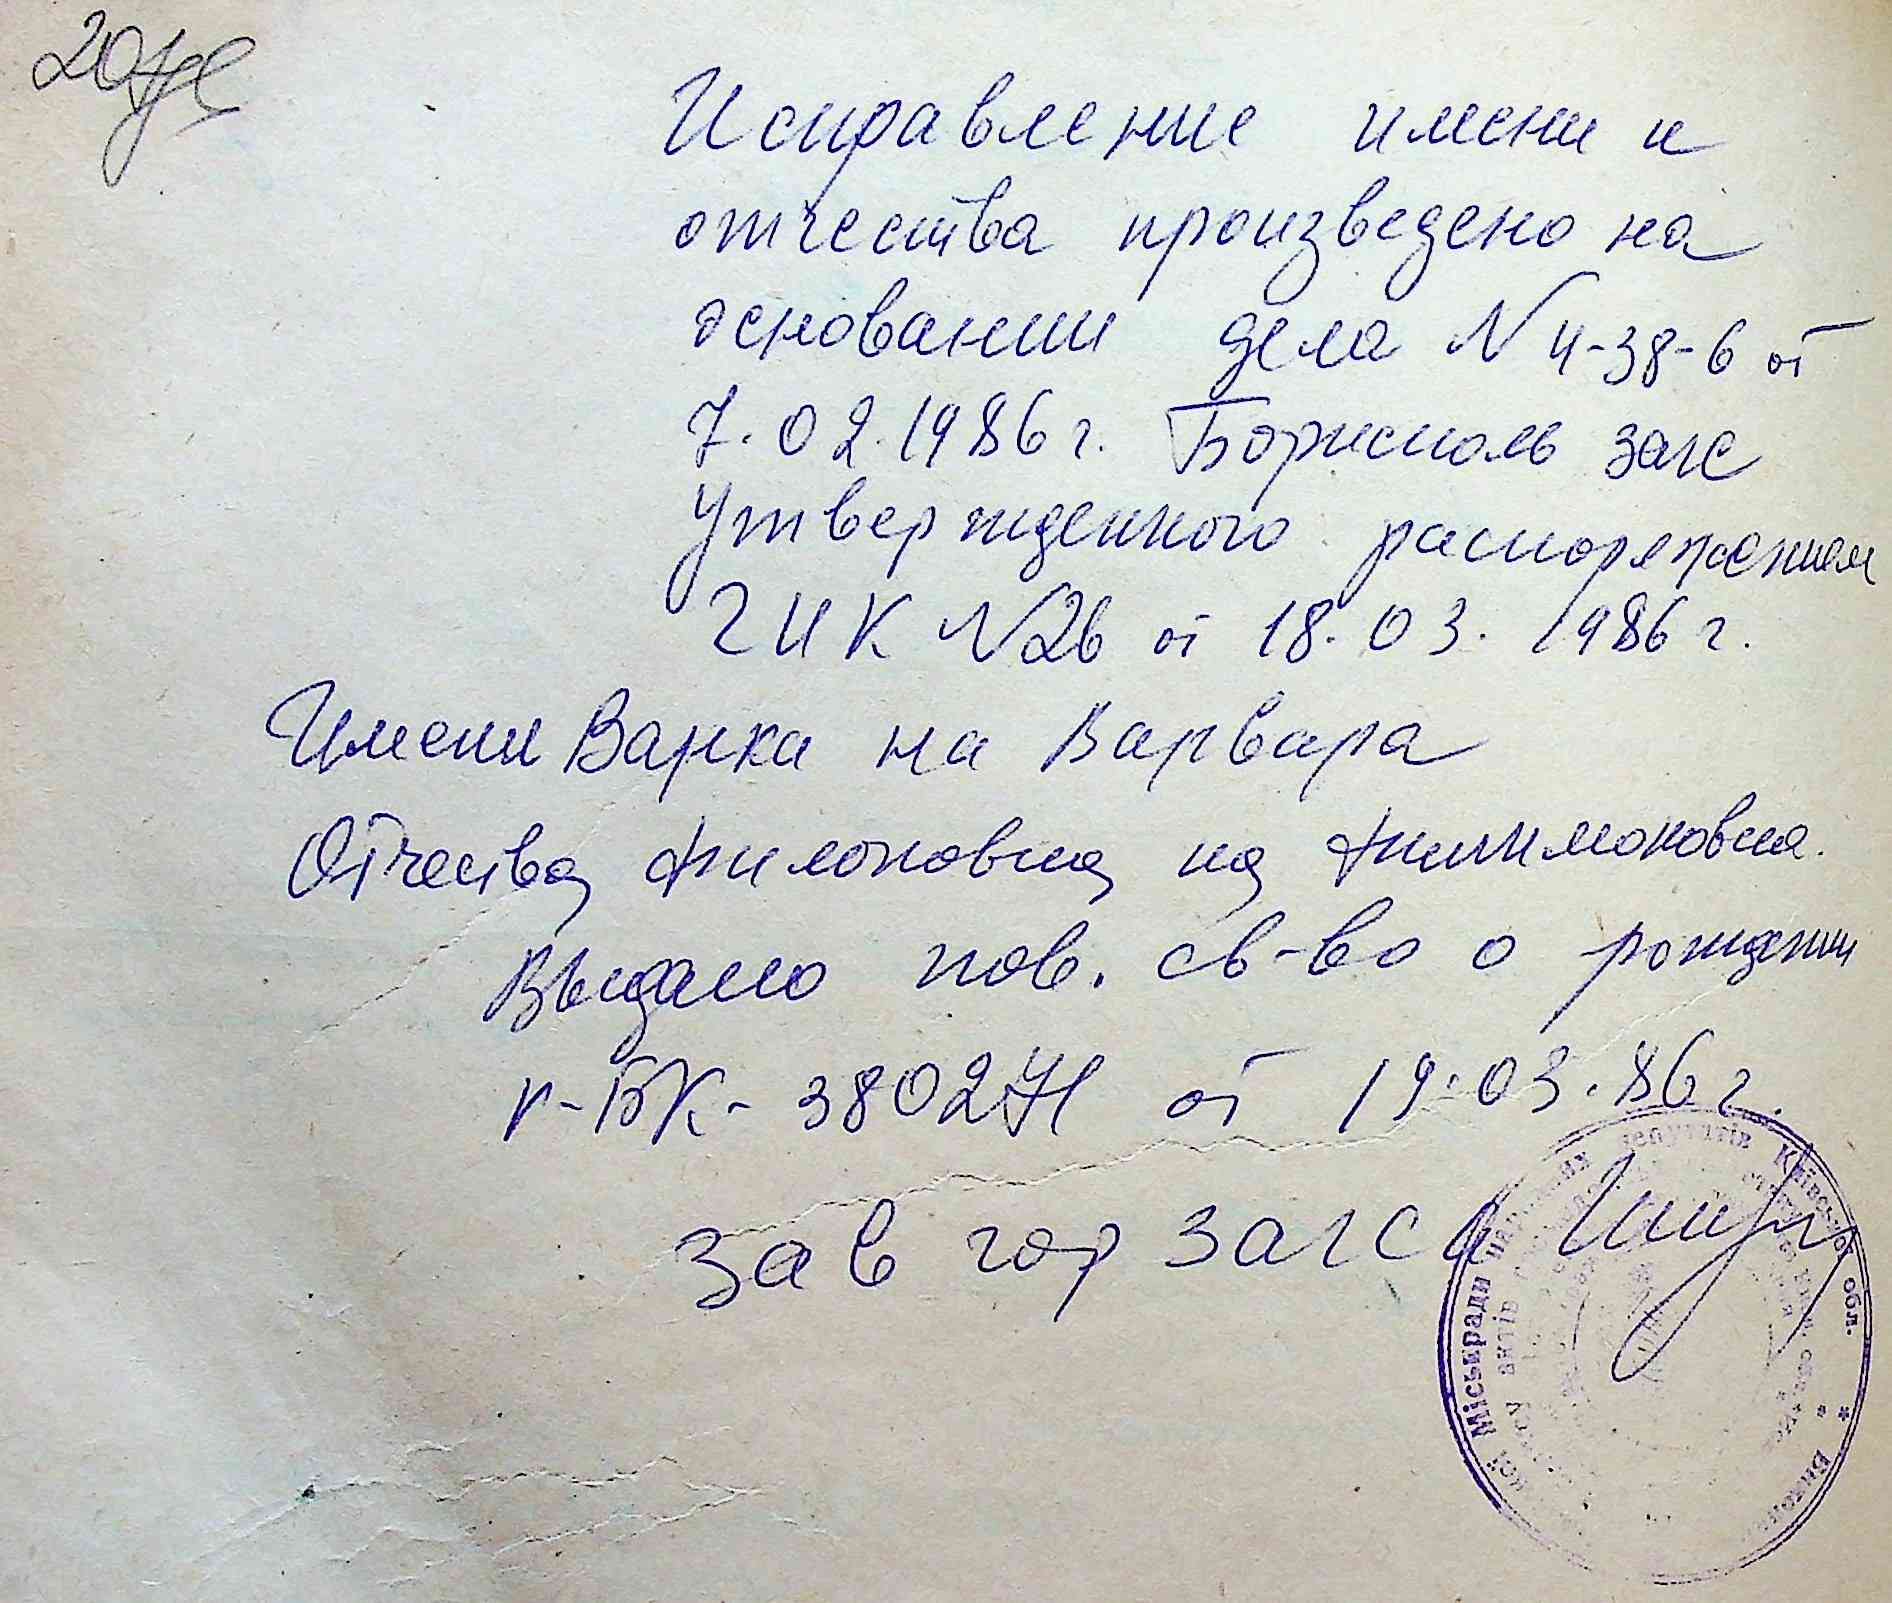 Исправление имени и
отчества произведено на
основании дела N 4-38-6 от
7.02.1986 г. Борисполь загс
утвержденного распоряжением
ГИК N 26 от 18.03.1986 г.
Имени Варка на Варвара
Отчества Филоновна на Филимоновна.
Выдано пов. св-во о рождении
БК- от 19.03.86 г.
зав гор загса
Міськради народних депутатів Київської обл. * Викон
актів